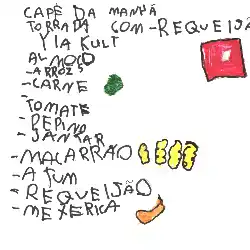 CAPÉ DA MANHÃ
TORRADA COM-REQUEIJÃ
YIA KULT
ALMOÇO
-ARROZ
-CARNE
-
TOMATE
-PEPINO
-JANTAR
-MACARRÃO
-ATUM
-REQUEIJÃO
-MEXERICA